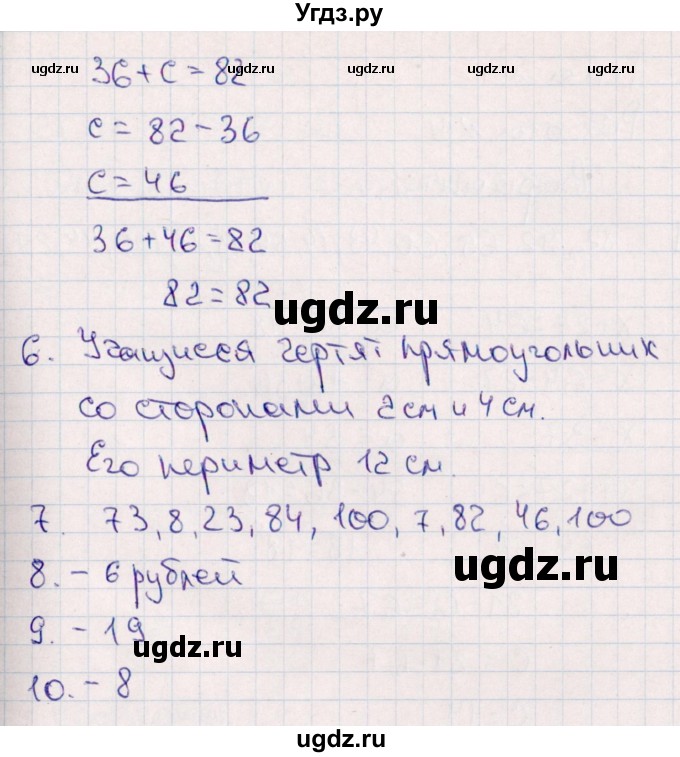 Угдз.ру
ugdz.ru ugdz.ru ugdz.ru ugdz.ru ugdz.ru
36 + c = 82
c = 82 - 36
c = 46
36 + 46 = 82
82 = 82
ugdz.ru
6. Учащиеся чертят прямоугольник
со сторонами 2 см и 4 см.
Его периметр 12 см.
7. 73, 8, 23, 84, 100, 7, 82, 46, 100
8. - 6 рублей
ugdz.ru
9. - 19
ugdz.ru
10. - 8
ugdz.ru